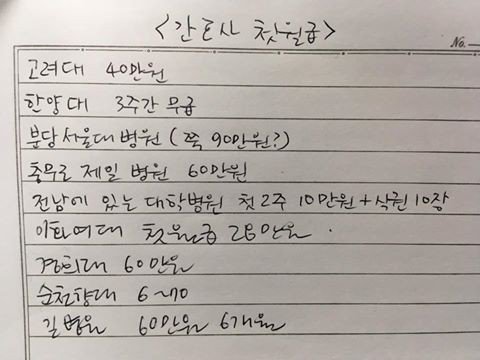 <간호사 첫월급>
No.
고려대 40만원
한양대 3주간 무급
분당서울대병원 (쭉 90만원?)
충무로 제일 병원 60만원
전남에 있는 대학병원 첫2주 10만원+식권10장
이화여대 첫월급 28만원.
경희대 60만원
순천향대 6~70
길병원 60만원 6개월